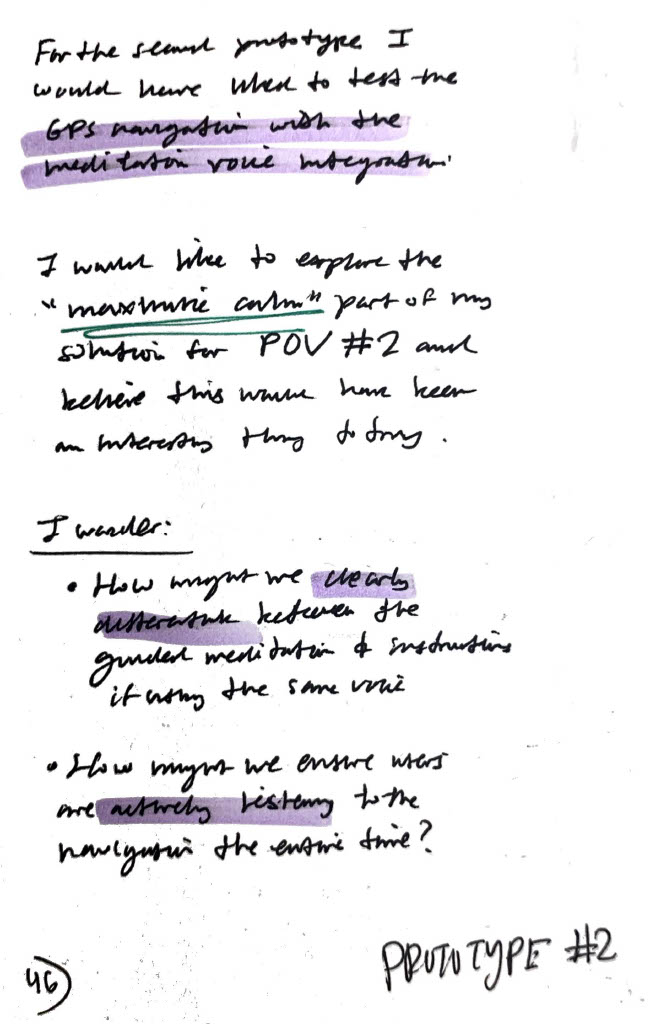 For the second prototype I
would have liked to test the
GPS navigation with the
meditation voice integration.
I would like to explore the
"maximize calm" part of my
solution for POV #2 and
believe this would have been
an interesting thing to try.
I wonder:
• How might we clearly
differentiate between the
guided meditation & instructions
if using the same voice
• How might we ensure users
are actively listening to the
navigation the entire time?
PROTOTYPE #2
46